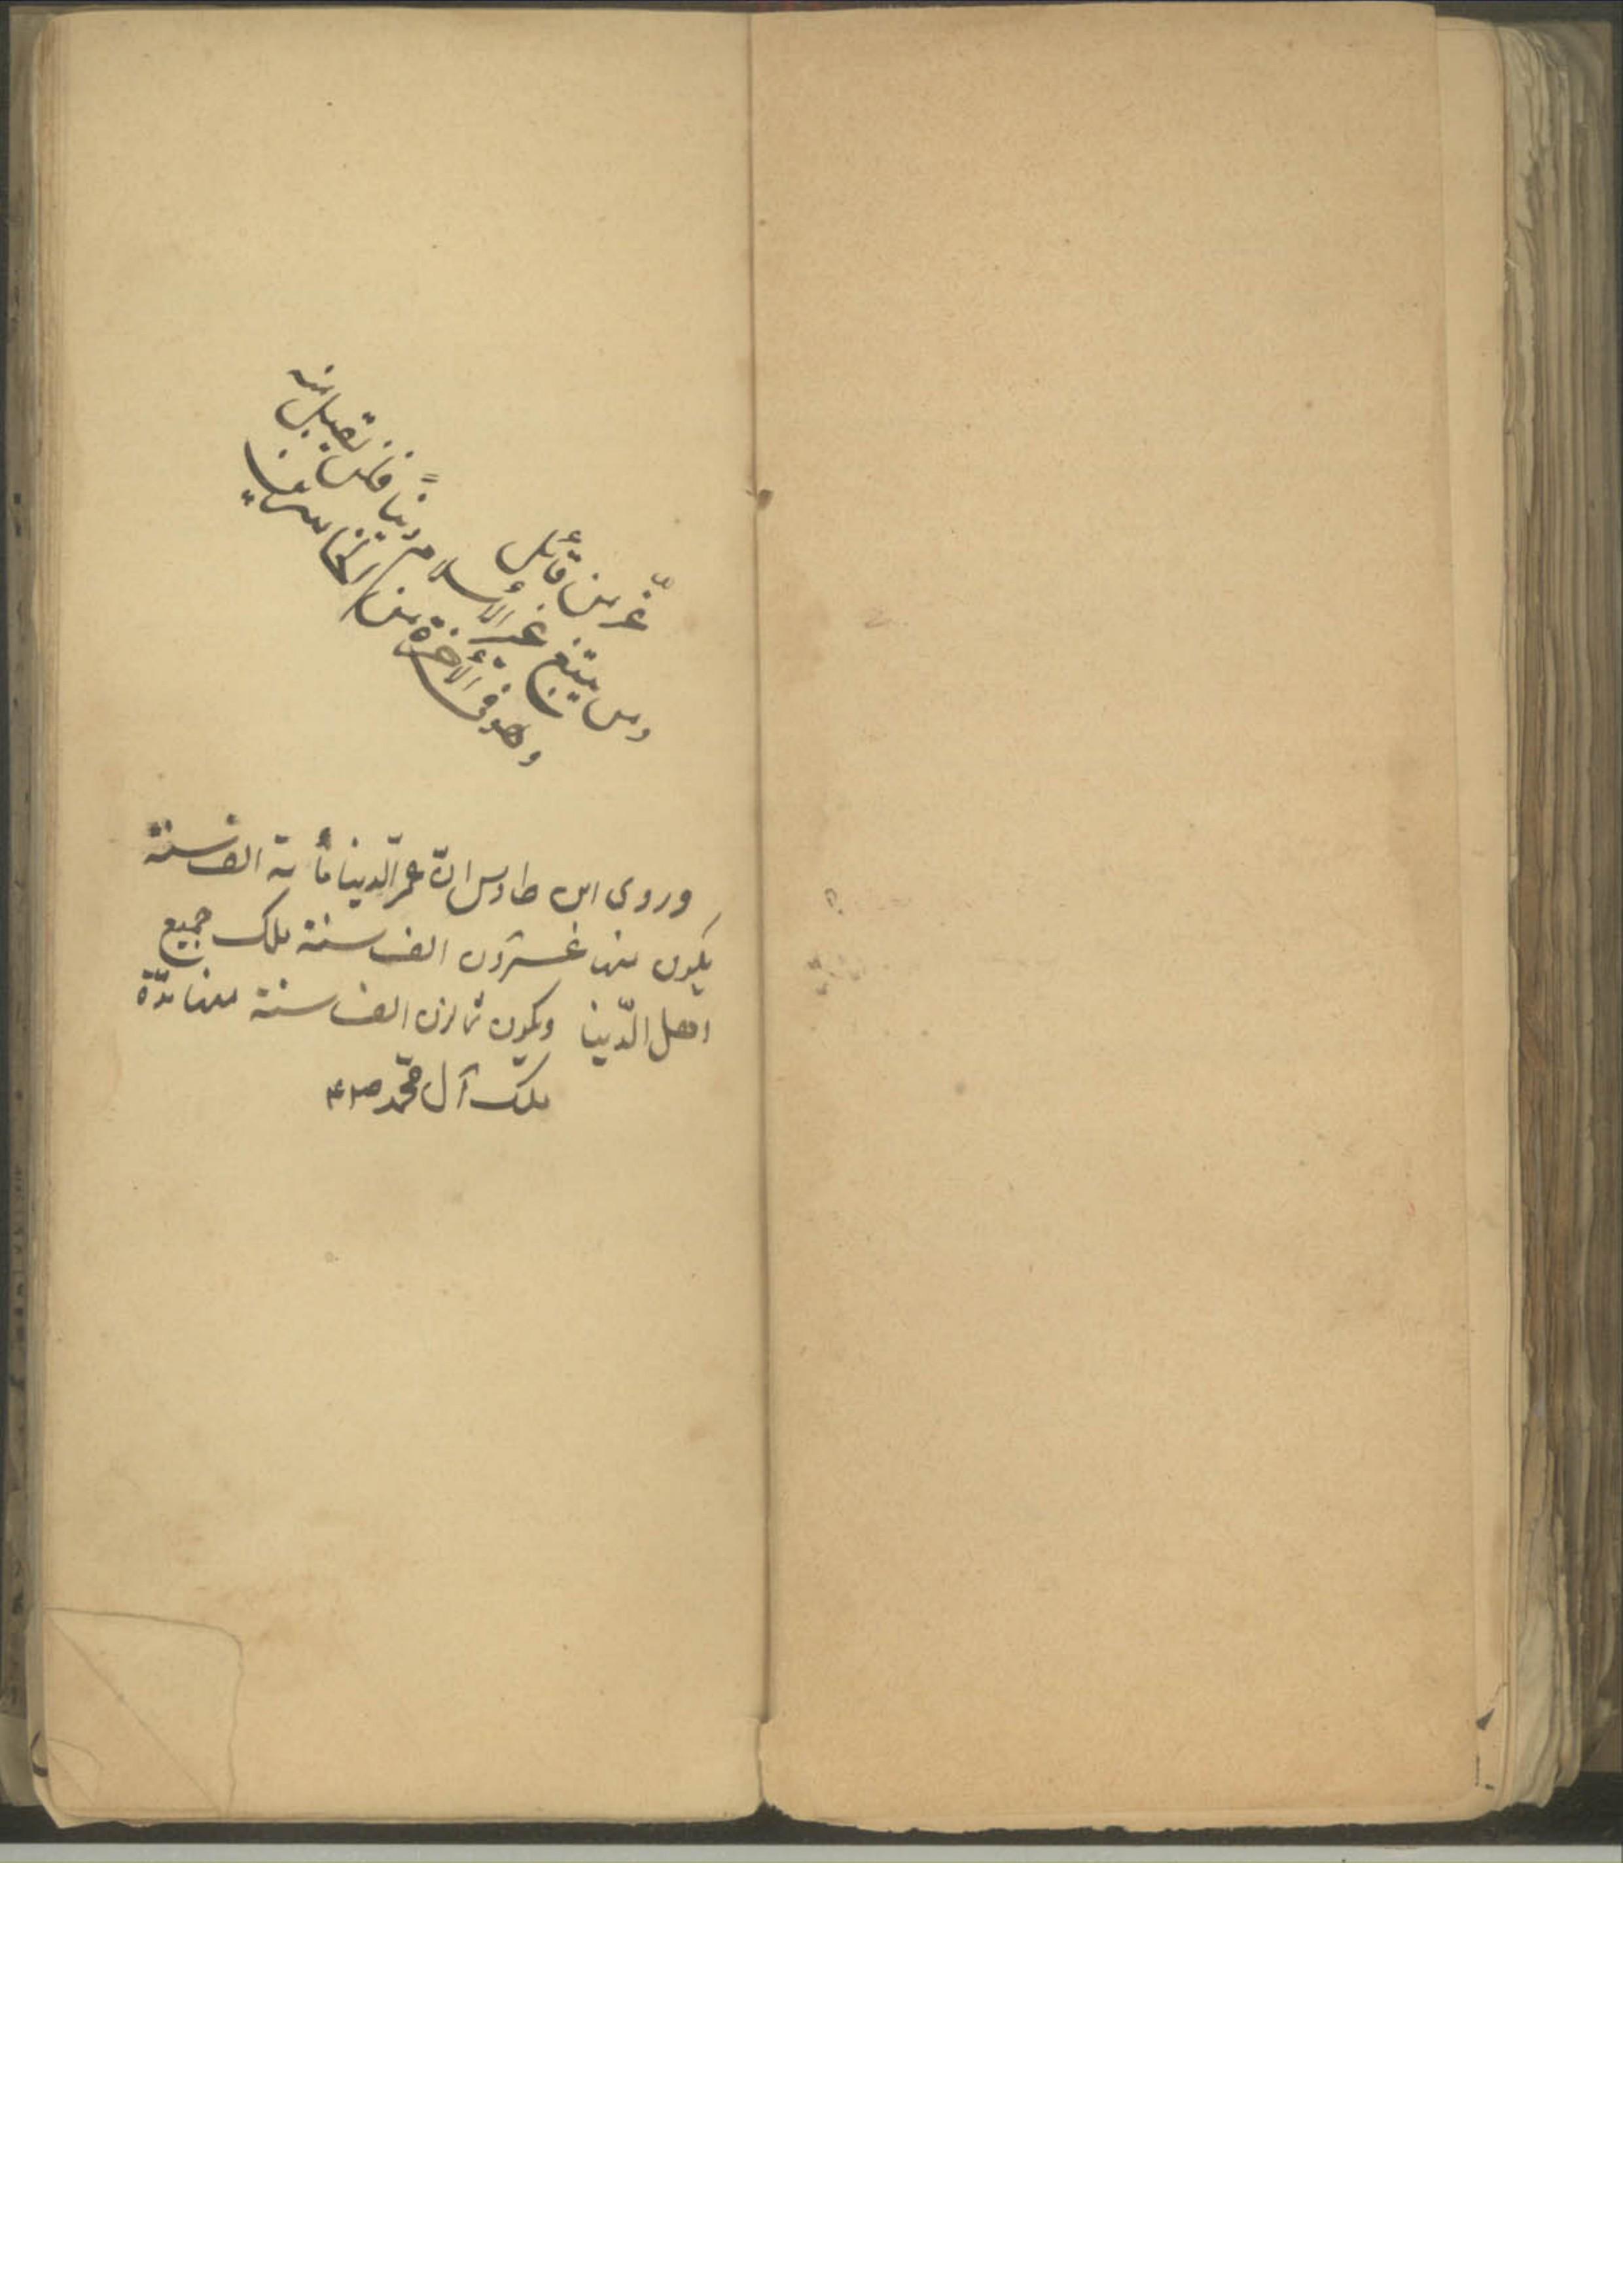 عزّ من قائل
ومن يبتغ غير الأسلام ديناً فلن تقبل منه
وهو فى الأخرة من الخاسرين
وروى ابن طاوس انّ عمر الّدينا مأ ية الف سنة
يكون منها عشرون الف سنة ملك جميع
اهل الّدينا ويكون ثمانون الف سنة منها مدّة
ملك آل محمّد ص